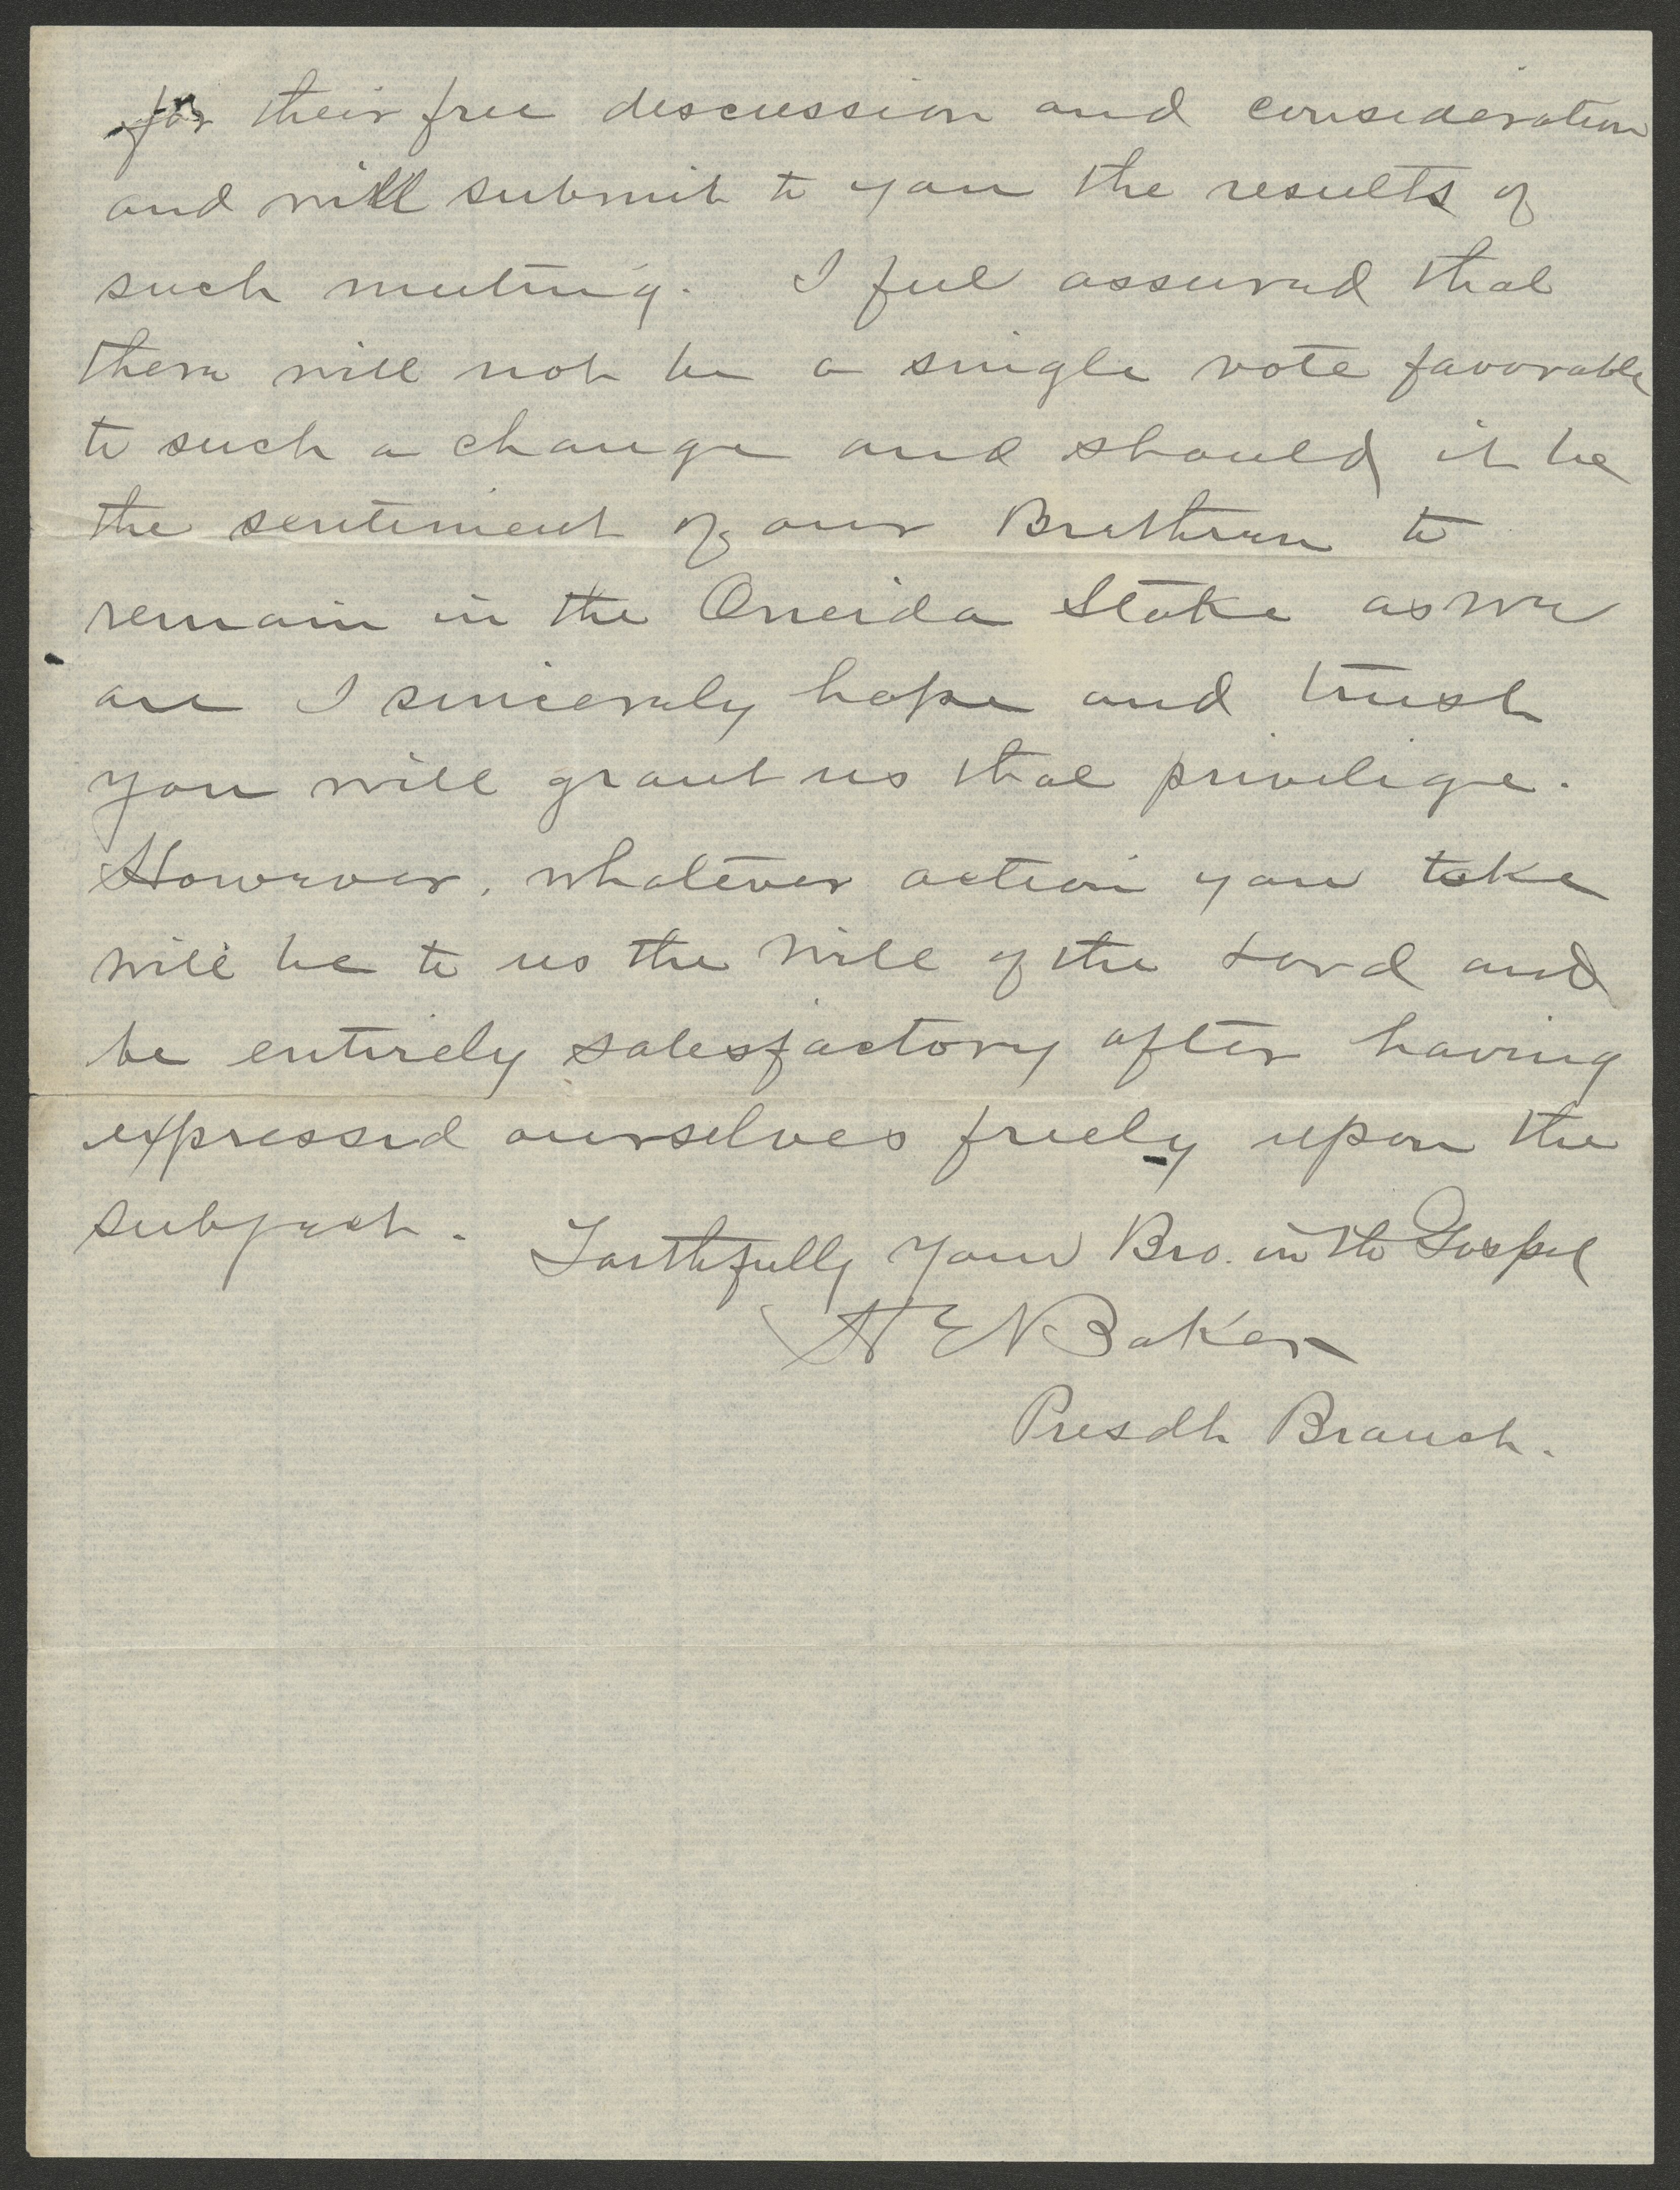 for their free descussion and consideration
and will submit to you the results of
such meeting. I feel assured that
there will not be a single vote favorable
to such a change and should it be
the sentiment of our Brethren to
remain in the Oneida Stake as we
are I sincerely hope and trust
you will grant us that privilige.
However, whatever action you take
will be to us the will of the Lord and
be entirely salesfactory after having
expressed ourselves freely upon the
subject. Faithfully Your Bro. in the Gospel
Baker
Presdt Branch.